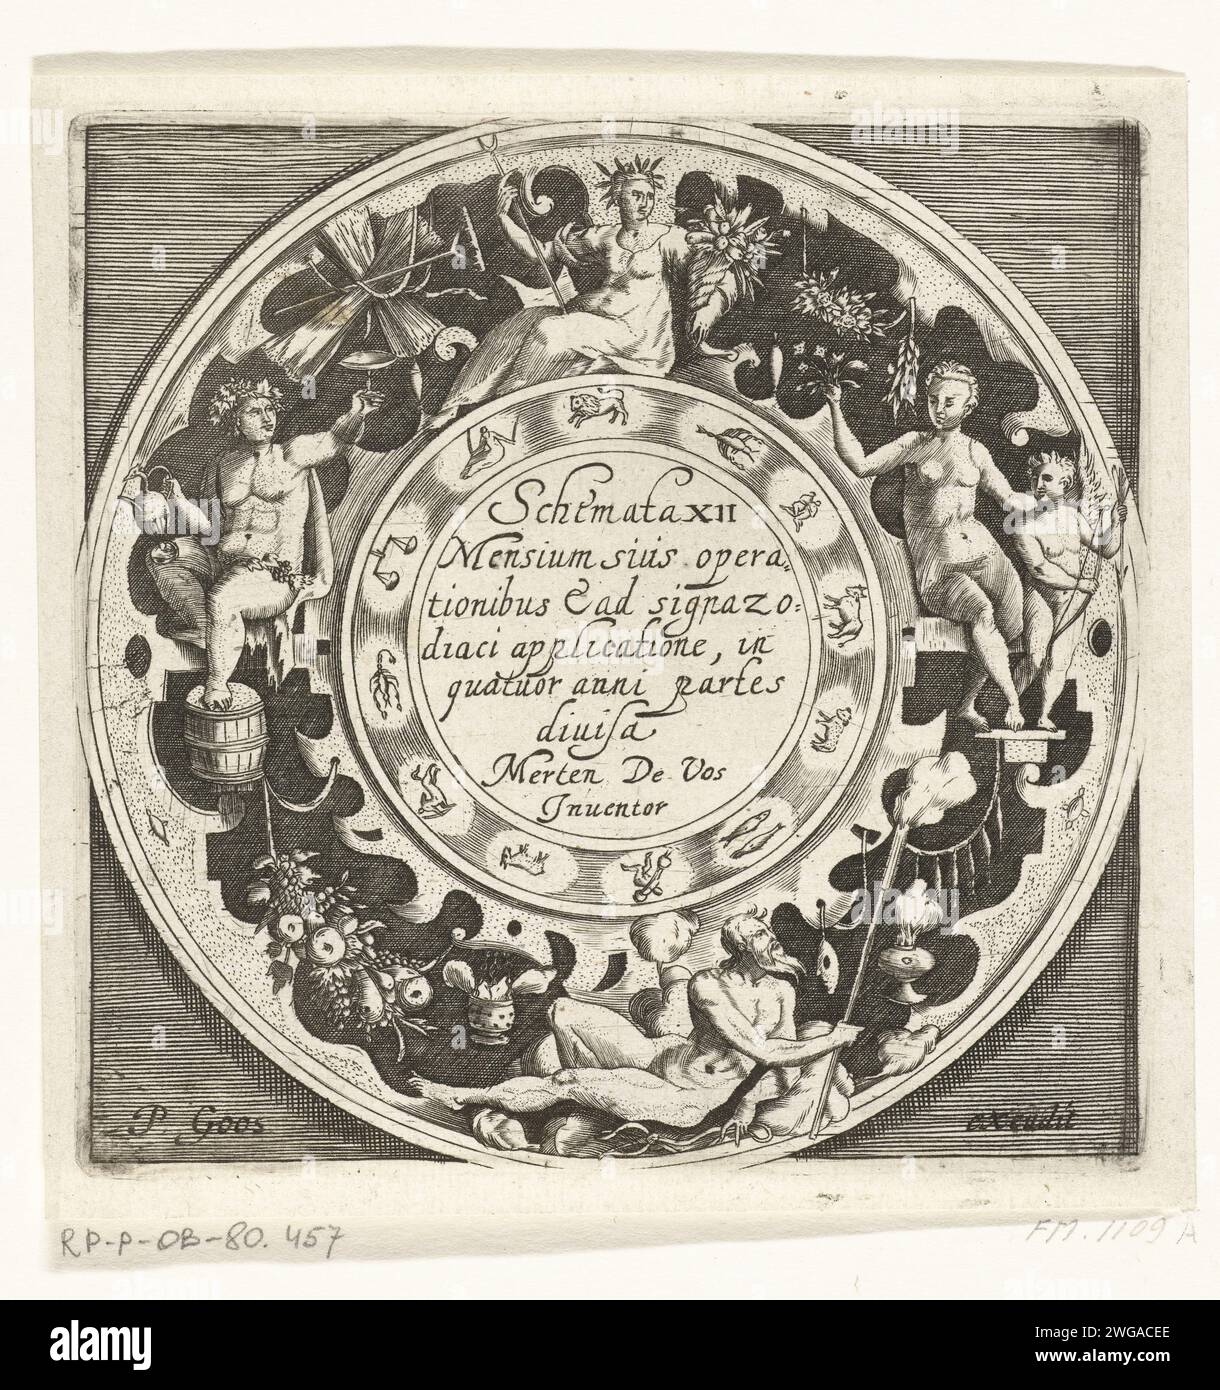 Schemata XII
Mensium suis opera,
tionibus & ad signa zo:
diaci applicatione, in
quatuor anni partes
diuisa
Merten De Vos
Inuentor
P. Goos
excudit
RP-P-OB-80.457
FM. 1109 A
alamy
Image ID: 2WGACEE
www.alamy.com